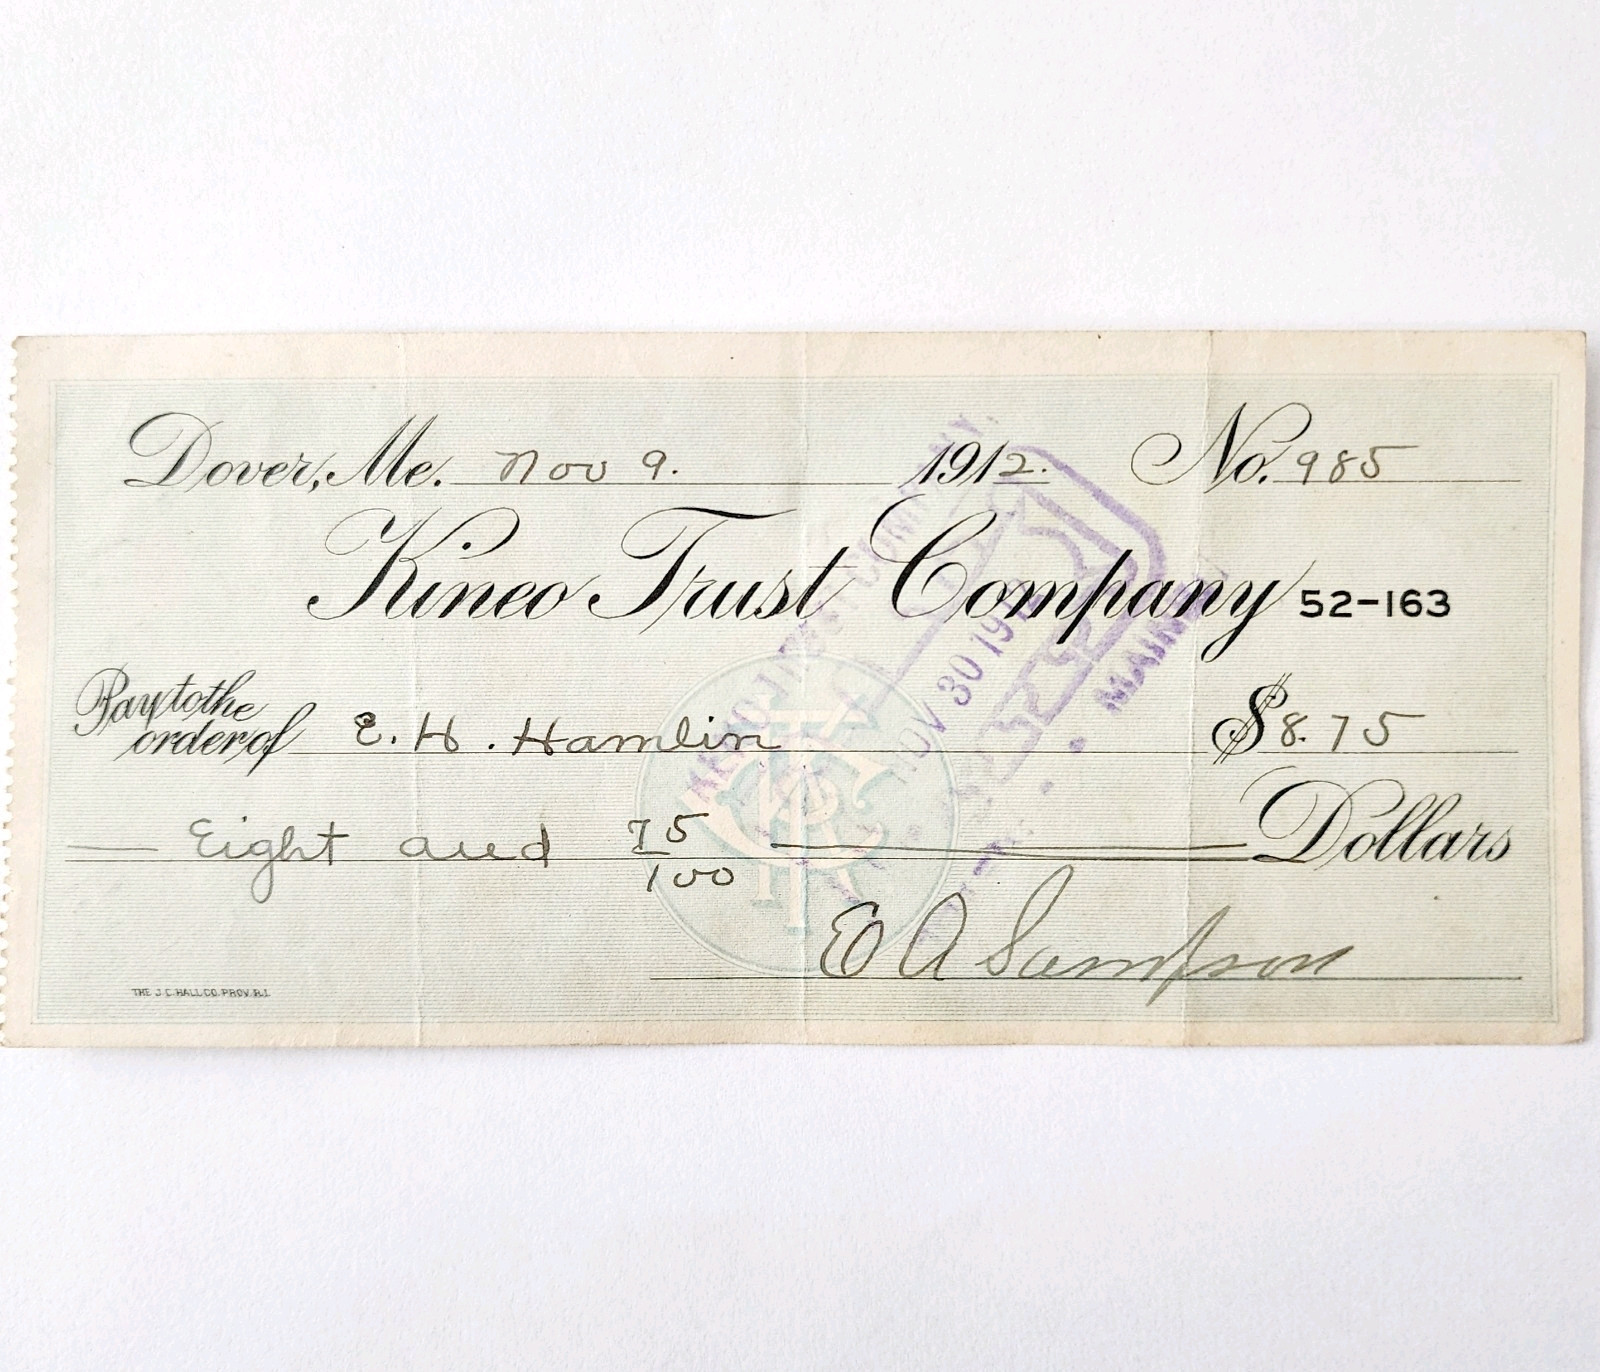 Dover, Me. Nov 9. 1912. No. 985
Kineo Trust Company 52-163
Pay to the
order of E. H. Hamlin $8.75
Eight and 75/100 Dollars
E A Sampson
THE J.C. HALL CO. PROV. R.I.
KINEO TRUST COMPANY,
PAID
NOV 30 1912
MAINE